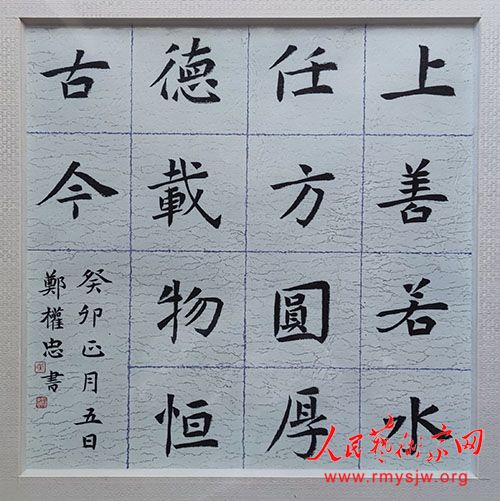 上善若水
任方圓厚
德載物恒
古今
癸卯正月五日
鄭權忠書
人民艺术家网
www.rmysjw.org